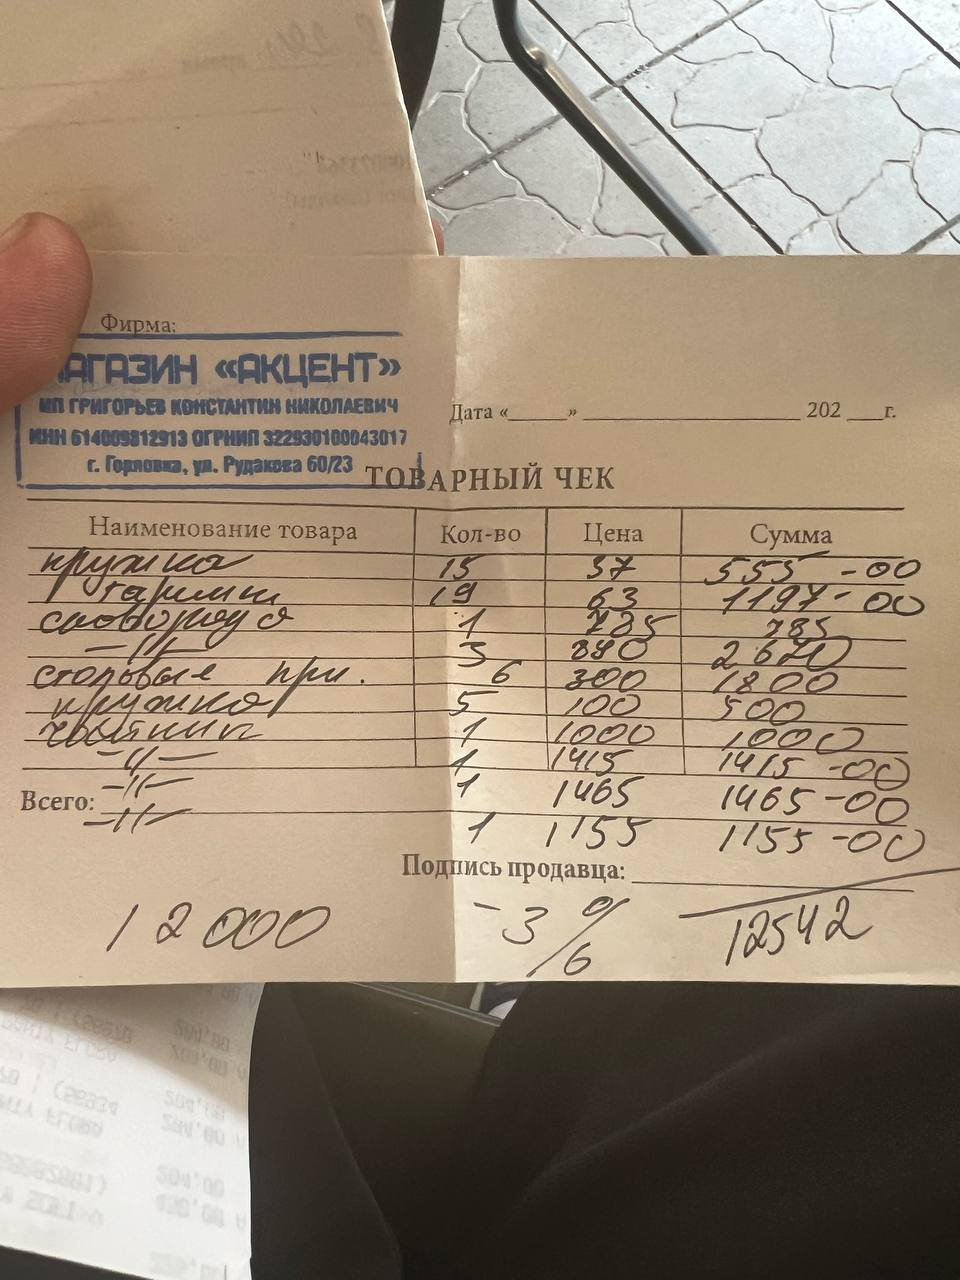 Фирма:
МАГАЗИН «АКЦЕНТ»
ИП ГРИГОРЬЕВ КОНСТАНТИН НИКОЛАЕВИЧ
ИНН 614009812913 ОГРНИП 322930100043017
г. Горловка, ул. Рудакова 60/23
Дата «____» ____________ 202 ___г.
ТОВАРНЫЙ ЧЕК
Наименование товара Кол-во Цена Сумма
кружка 15 37 555 -00
19 63 1197 - 00
сковорода 1 785 785
-"- 3 890 2670
столовые при. 6 300 1800
кружка 5 100 500
чайник 1 1000 1000
-"- 1 1415 1415 -00
-"- 1 1465 1465 -00
Всего:
-"- 1 1155 1155 -00
Подпись продавца:
12000 -3% 12542